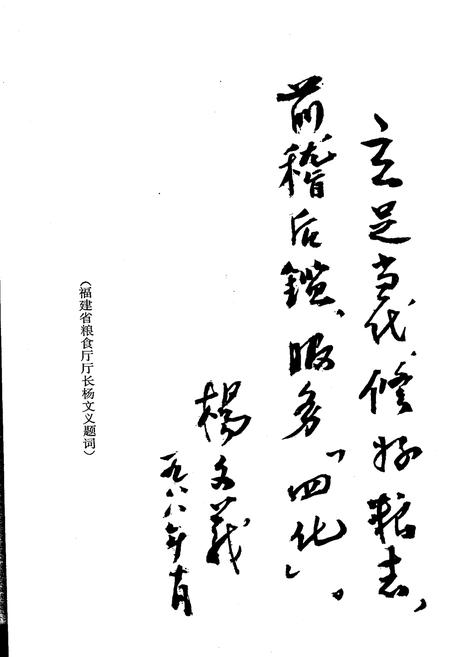 立足当代，修好粮志，
前稽后鑑、服务「四化」。
楊文義
一九八八年十月
（福建省粮食厅厅长杨文义题词）